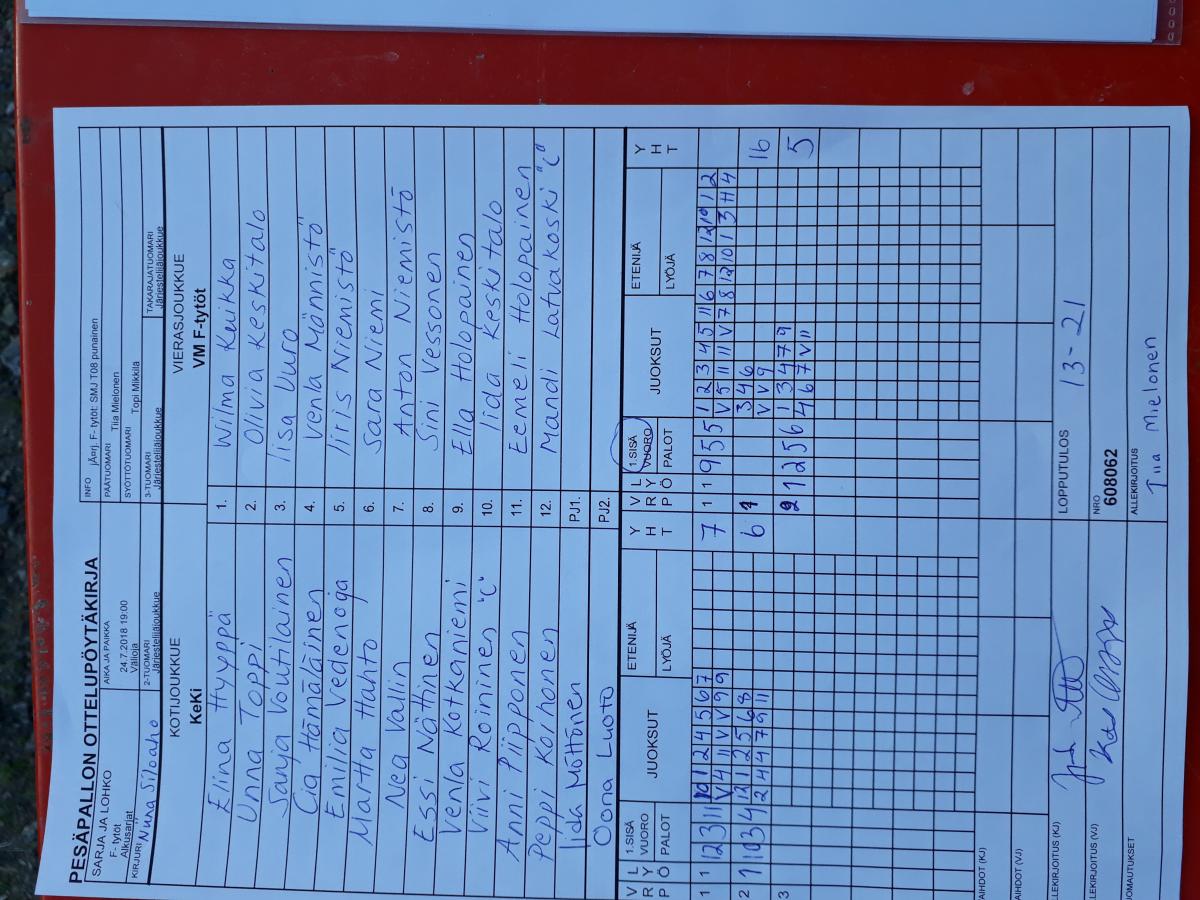 PESÄPALLON OTTELUPÖYTÄKIRJA
SARJA JA LOHKO
F- tytöt
Alkusarjat
AIKA JA PAIKKA
24.7.2018 19:00
Välioja
INFO jÄ¤rj. F- tytöt: SMJ T08 punainen
PÄÄTUOMARI Tiia Mielonen
SYÖTTÖTUOMARI Topi Mikkilä
KIRJURI Siloaho
2-TUOMARI
Järjestelijäjoukkue
3-TUOMARI
Järjestelijäjoukkue
TAKARAJATUOMARI
Järjestelijäjoukkue
KOTIJOUKKUE
KeKi
VIERASJOUKKUE
VM F-tytöt
Eina Hyyppä 1. Wilma Kuikka
Unna Toppi 2. Olivia Keskitalo
Sanja Voutilainen 3. Iisa Uuro
Cia Hämäläinen 4. Venla Mönnistö
Emilia Vedenoja 5. Iiris Niemistö
Martta Hahto 6. Sara Niemi
Nea Vallin 7. Anton Niemistö
Essi Nätinen 8. Sini Vessonen
Venla Kotkaniemi 9. Ella Holopainen
Viivi Roininen "C" 10. Iida Keskitalo
Anni Piipponen 11. Eemeli Holopainen
Peppi Korhonen 12. Mandi Latvakoski "C"
Iida Möttönen PJ1.
Oona Luoto PJ2.
V R P L Y Ö 1.SISÄ VUORO PALOT JUOKSUT ETENIJÄ LYÖJÄ Y H T V R P L Y Ö 1.SISÄ VUORO PALOT JUOKSUT ETENIJÄ LYÖJÄ Y H T
1 1 12 3 11 10 1 2 4 5 6 7 7 1 1 9 5 5 1 2 3 4 5 11 6 7 8 12 10 1 2
V 4 11 V V 9 9 V 5 11 11 V 7 8 12 10 1 3 H 4
2 1 10 3 4 12 1 2 5 6 8 6 3 4 6 16
2 4 4 7 9 11 V V 9
3 2 1 2 5 6 1 3 4 7 9 5
4 6 7 V 11
AIHDOT (KJ)
AIHDOT (VJ)
LLEKIRJOITUS (KJ)
LOPPUTULOS 13-21
LLEKIRJOITUS (VJ)
NRO
608062
UOMAUTUKSET
ALLEKIRJOITUS
Tiia Mielonen